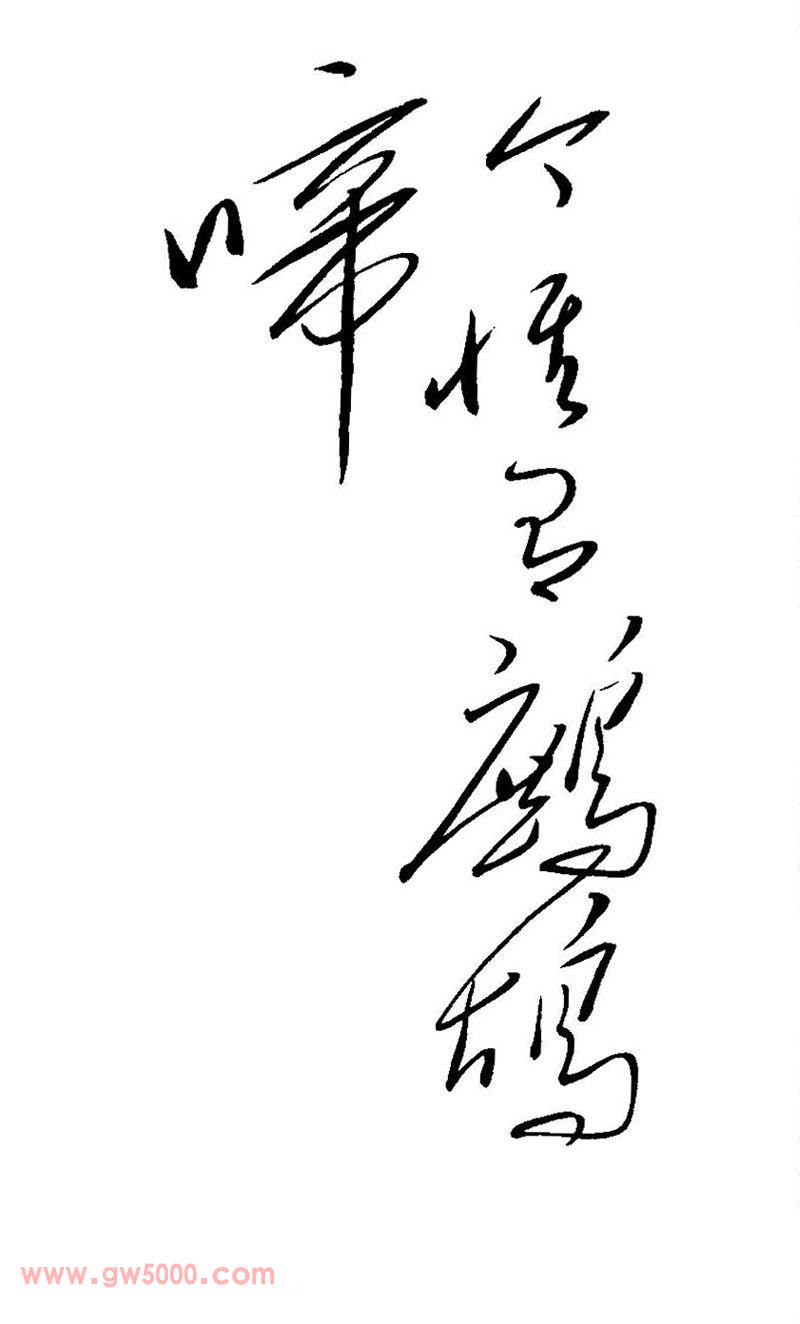 今惟有鹧鸪
啼
www.gw5000.com